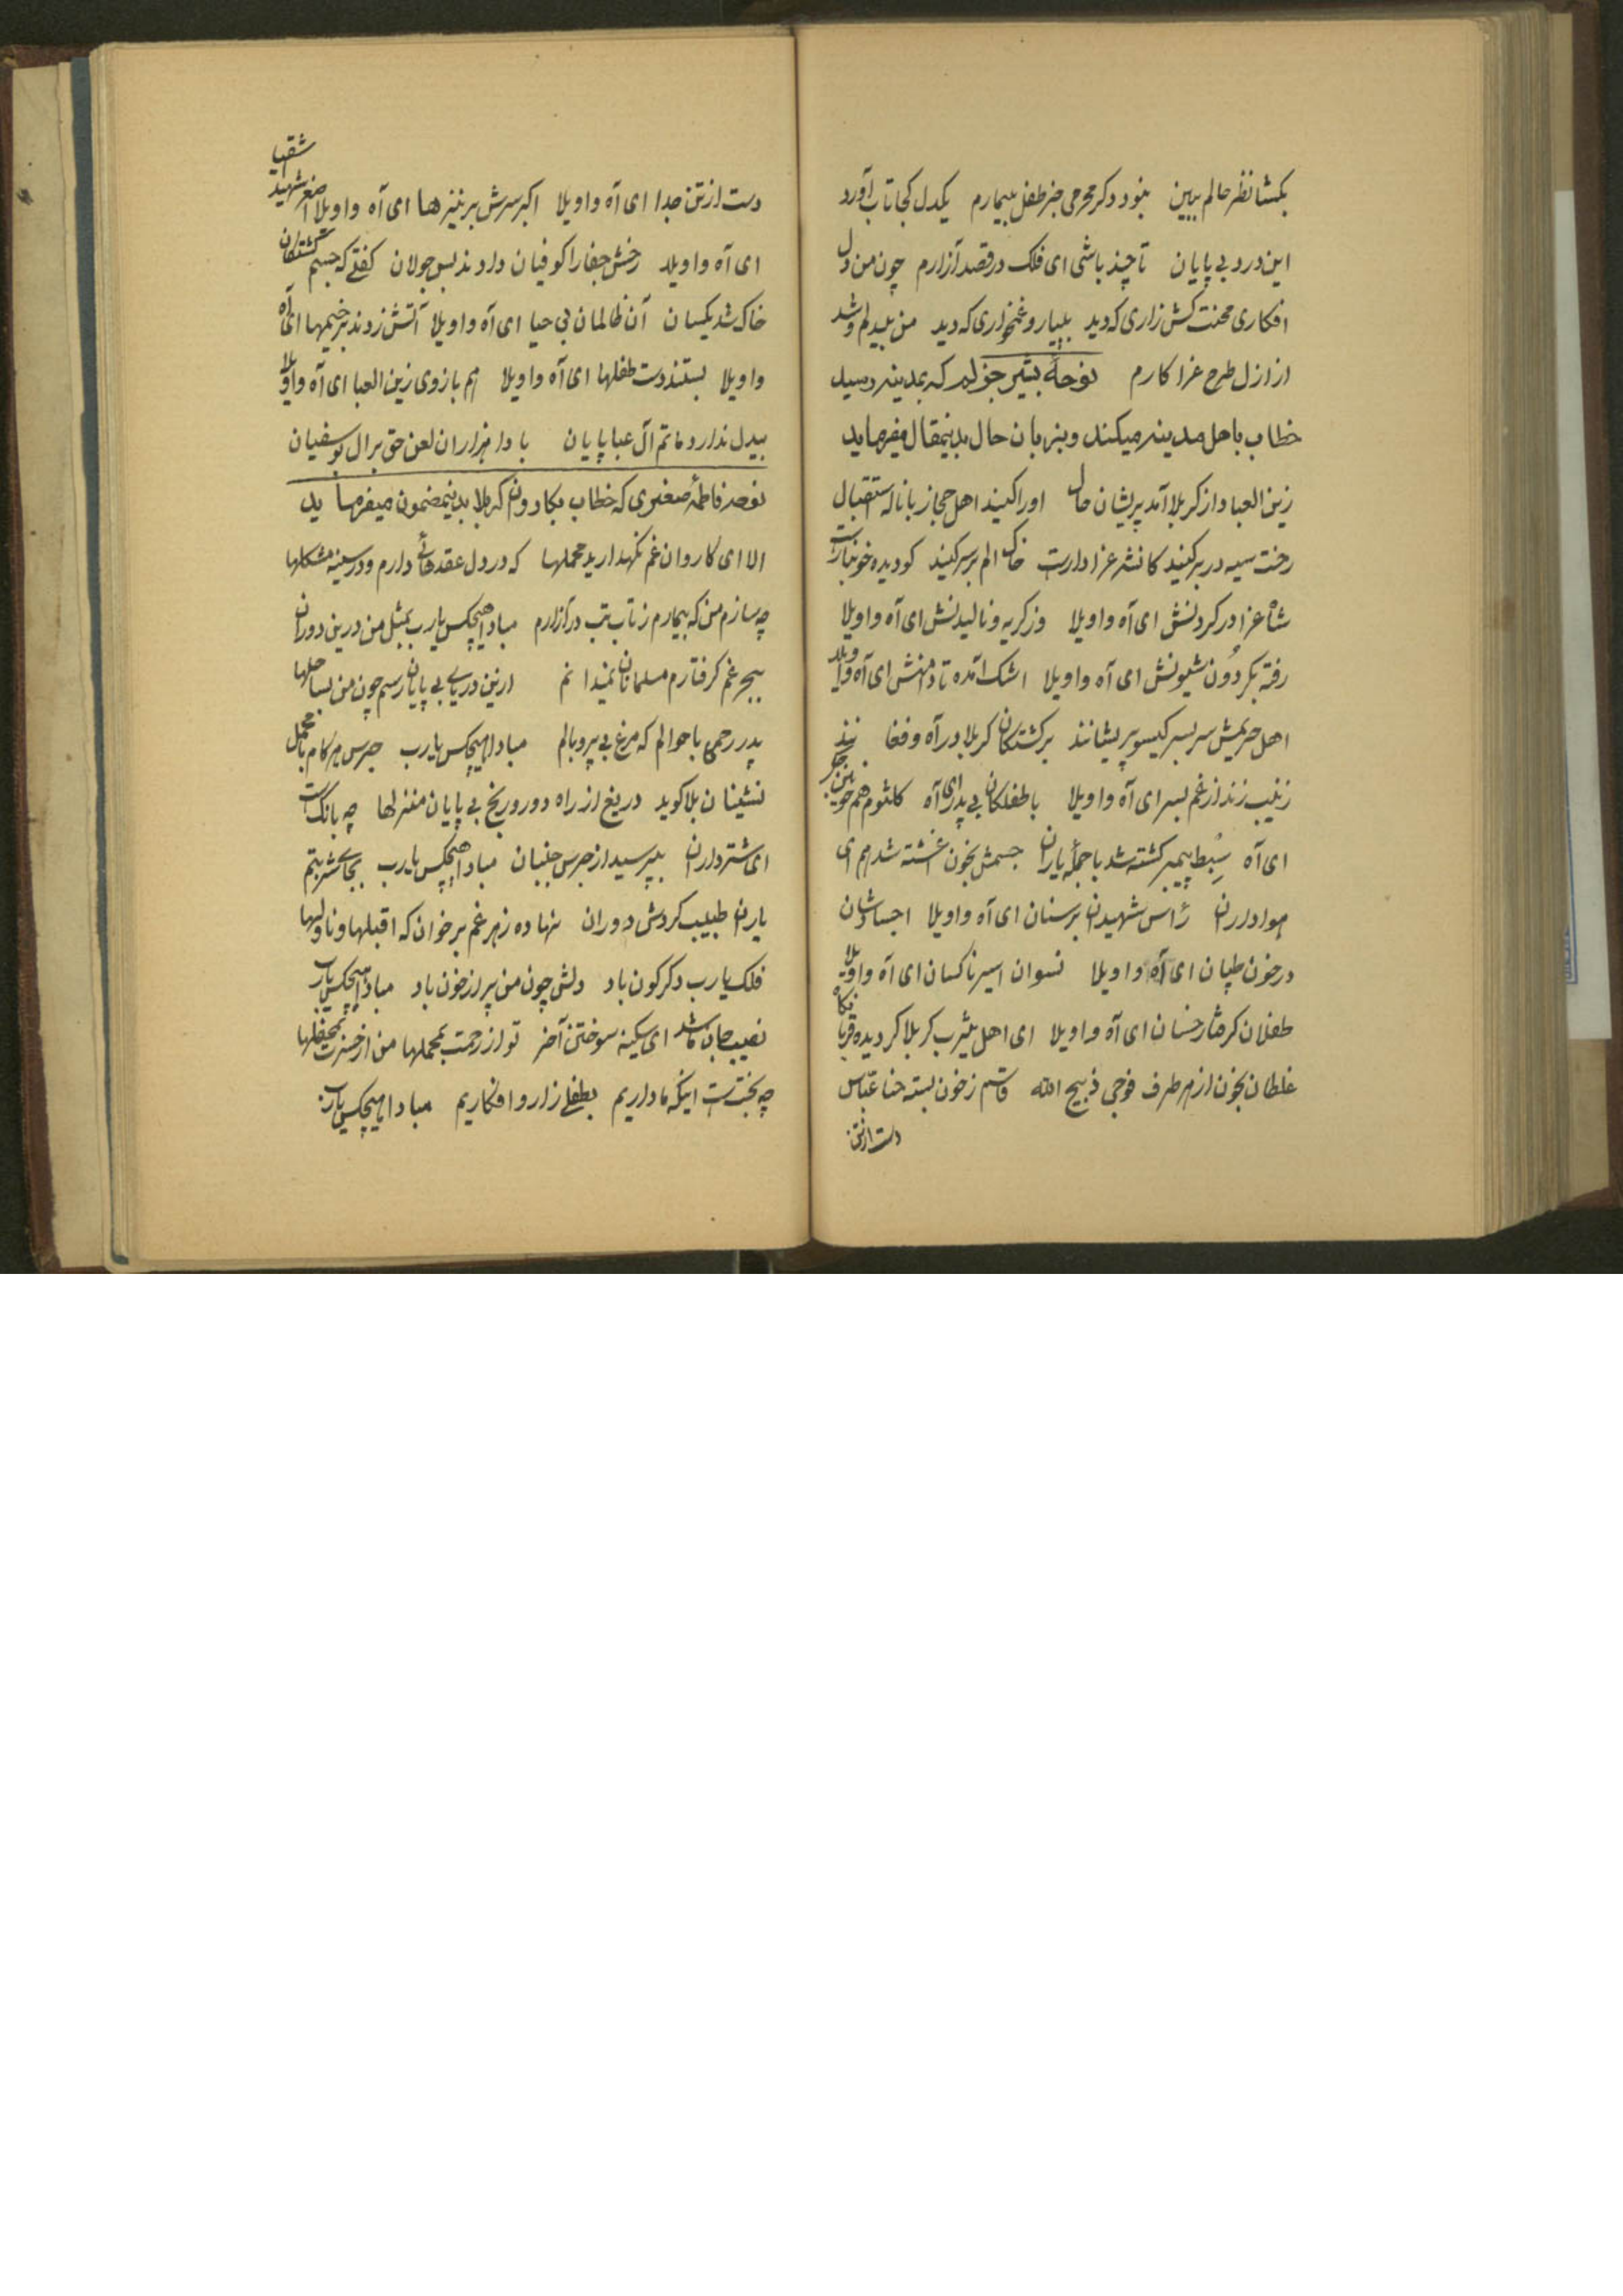 بکشا نظر حالم ببین نبود دکر محرمی جز طفل بیمارم یکدل کجا تاب آورد
این درد بی پایان تا چند باشی ای فلک در قصد آزارم چون من دل
افکاری محنت کش زاری که دید بییار و غمخواری که دید من بیدلم و شد
از ازل طرح عزا کارم نوحهٔ بشیر جزلم که بمدینه رسید
خطاب باهل مدینه میکند و بزبان حال بدینمقال میفرماید
زین العبا داز کربلا آمد پریشان حال او را کنید اهل حجاز با ناله استقبال
رخت سیه در بر کنید کانشه عزادارست خاک الم بر سر کنید کو دیده خونبارست
شال عزا در کردنش ای آه واویلا وز کریه و نالیدنش ای آه واویلا
رفته بکردون شیونش ای آه واویلا اشک آمده تا دامنش ای آه واویلا
اهل حریمش سربسر کیسو پریشانند بر کشتکان کربلا در آه و فغا نند
زینب زند از غم بسر ای آه واویلا با طفلکان بی پدر ای آه کلثوم هم خونین جکر
ای آه سبط پیمبر کشته شد با جملهٔ یاران جسمش بخون آغشته شد هم ای
هواداران رأس شهیدان بر سنان ای آه واویلا اجسادشان
در خون طپان ای آه واویلا نسوان اسیر ناکسان ای آه واویلا
طفلان کرفتار خسان ای آه واویلا ای اهل یثرب کربلا کردیده قربانکاه
غلطان بخون از هر طرف فوجی ذبیح الله قاسم ز خون بسته حنا عباس
دست از تن
دست از تن جدا ای آه واویلا اکبر سرش بر نیزها ای آه واویلا اصغر شهید اشقیا
ای آه واویلا رخش جفا را کوفیان دادند بس جولان کفتی که جسم کشتکان
خاک شد یکسان آن ظالمان بی حیا ای آه واویلا آتش زدند بر خیمها ای آه
واویلا بستند دست طفلها ای آه واویلا هم بازوی زین العبا ای آه واویلا
بیدل ندارد ماتم آل عبا پایان بادا هزاران لعن حق بر ال بوسفیان
نوحه فاطمهٔ صغری که خطاب بکاروان کربلا بدینمضمون میفرما ید
الا ای کاروان غم نکهدارید محملها که در دل عقدهائی دارم و در سینه مشکلها
چه سازم من که بیمارم ز تاب تب در آزارم مبادا هیچکس یارب بمثل من درین دوران
ببحر غم کرفتارم مسلمانان نمیدا نم ازین دریای بی پایان رسم چون من بساحلها
پدر رحمی باحوالم که مرغ بی پر و بالم مبادا هیچکس یارب جرس هر کام با محمل
نشینان بلا کوید دریغ از راه دور و رنج بی پایان منزلها چه بانکست
ای شترداران بپرسید از جرس جنبان مبادا هیچکس یارب بجای شربتم
یاران طبیب کردش دوران نهاده زهر غم بر خوان که اقبلها و ناولها
فلک یارب دکرکون باد دلش چون من پر از خون باد مبادا هیچکس یارب
نصیب جان ما شد ای سکینه سوختن آخر تو از زحمت بمحملها من از حسرت بمحفلها
چه بختست اینکه ما داریم بطفلی زار و افکاریم مبادا هیچکس یارب